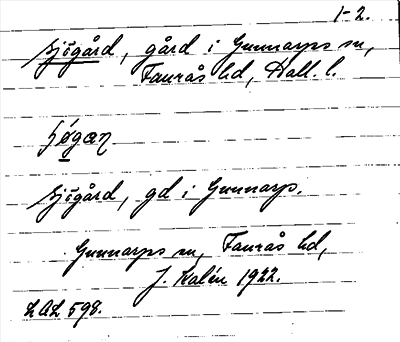 1-2.
sjögård, gård i Gunnarps sn,
Faurås hd, Hall. l.
ʃǿgaɲ
sjögård, gd i Gunnarp.
Gunnarps sn, Faurås hd,
J. Kalén 1922.
LAL 598.